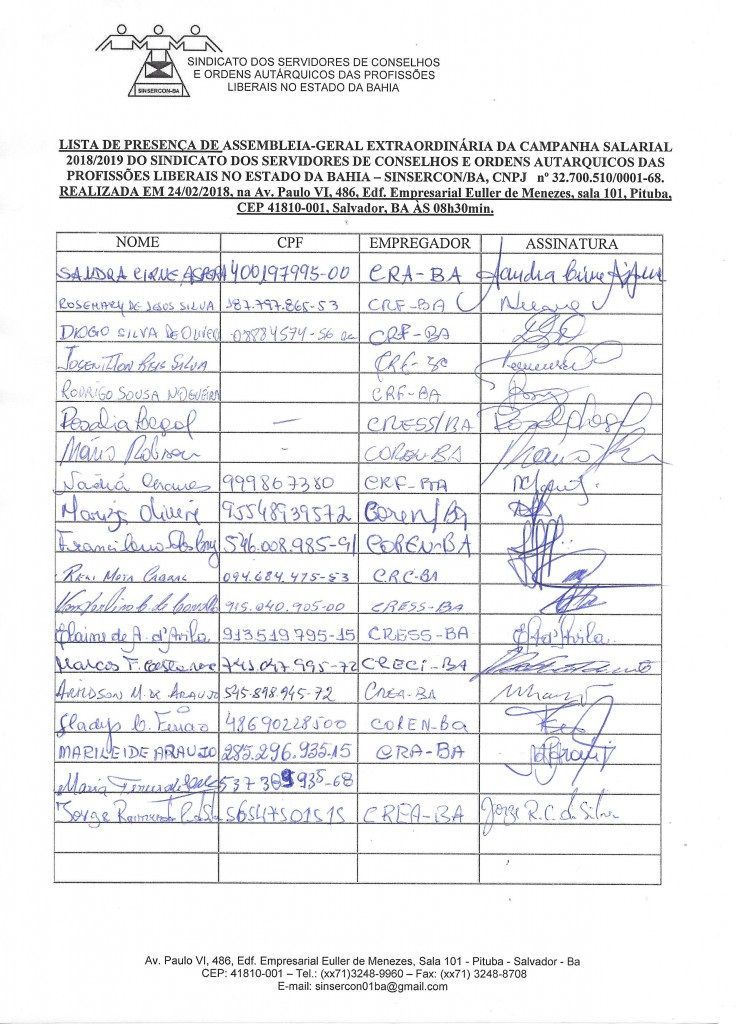 SINSERCON-BA
SINDICATO DOS SERVIDORES DE CONSELHOS
E ORDENS AUTÁRQUICOS DAS PROFISSÕES
LIBERAIS NO ESTADO DA BAHIA
LISTA DE PRESENÇA DE ASSEMBLEIA-GERAL EXTRAORDINÁRIA DA CAMPANHA SALARIAL
2018/2019 DO SINDICATO DOS SERVIDORES DE CONSELHOS E ORDENS AUTARQUICOS DAS
PROFISSÕES LIBERAIS NO ESTADO DA BAHIA – SINSERCON/BA, CNPJ nº 32.700.510/0001-68.
REALIZADA EM 24/02/2018, na Av. Paulo VI, 486, Edf. Empresarial Euller de Menezes, sala 101, Pituba,
CEP 41810-001, Salvador, BA ÀS 08h30min.
NOME CPF EMPREGADOR ASSINATURA
SANDRA CIRNE 400197995-00 CRA-BA Sandra Cirne
ROSEMARY DE JESUS SILVA 787.797.865-53 CRF-BA
DIOGO SILVA DE OLIVEI CRF-BA
JOSENILTON REIS SILVA
RODRIGO SOUSA NOGUEIRA CRF-BA
Rosalia — CRESS/BA
Mário Robson - COREN-BA
999867380 CRF-BA
Oliveira 95548939572 Coren/Ba
546.008.985-91 COREN-BA
RENI MOTA CABRAL 094.684.475-53 CRC-BA
915.040.905-00 CRESS-BA
Elaine de A. d'Avila 913519795-15 CRESS-BA d'Avila
Marcos T. 743.047.995-72 CRECI-BA
ARILDSON M. DE ARAUJO 545.898.945-72 CREA-BA
Gladys C. 48690228500 COREN-Ba
MARILEIDE ARAUJO 285.296.935.15 CRA-BA
Maria
Jorge Raimundo 56547501515 CREA-BA Jorge R.C. da Silva
Av. Paulo VI, 486, Edf. Empresarial Euller de Menezes, Sala 101 - Pituba - Salvador - Ba
CEP: 41810-001 – Tel.: (xx71)3248-9960 – Fax: (xx71) 3248-8708
E-mail: sinsercon01ba@gmail.com